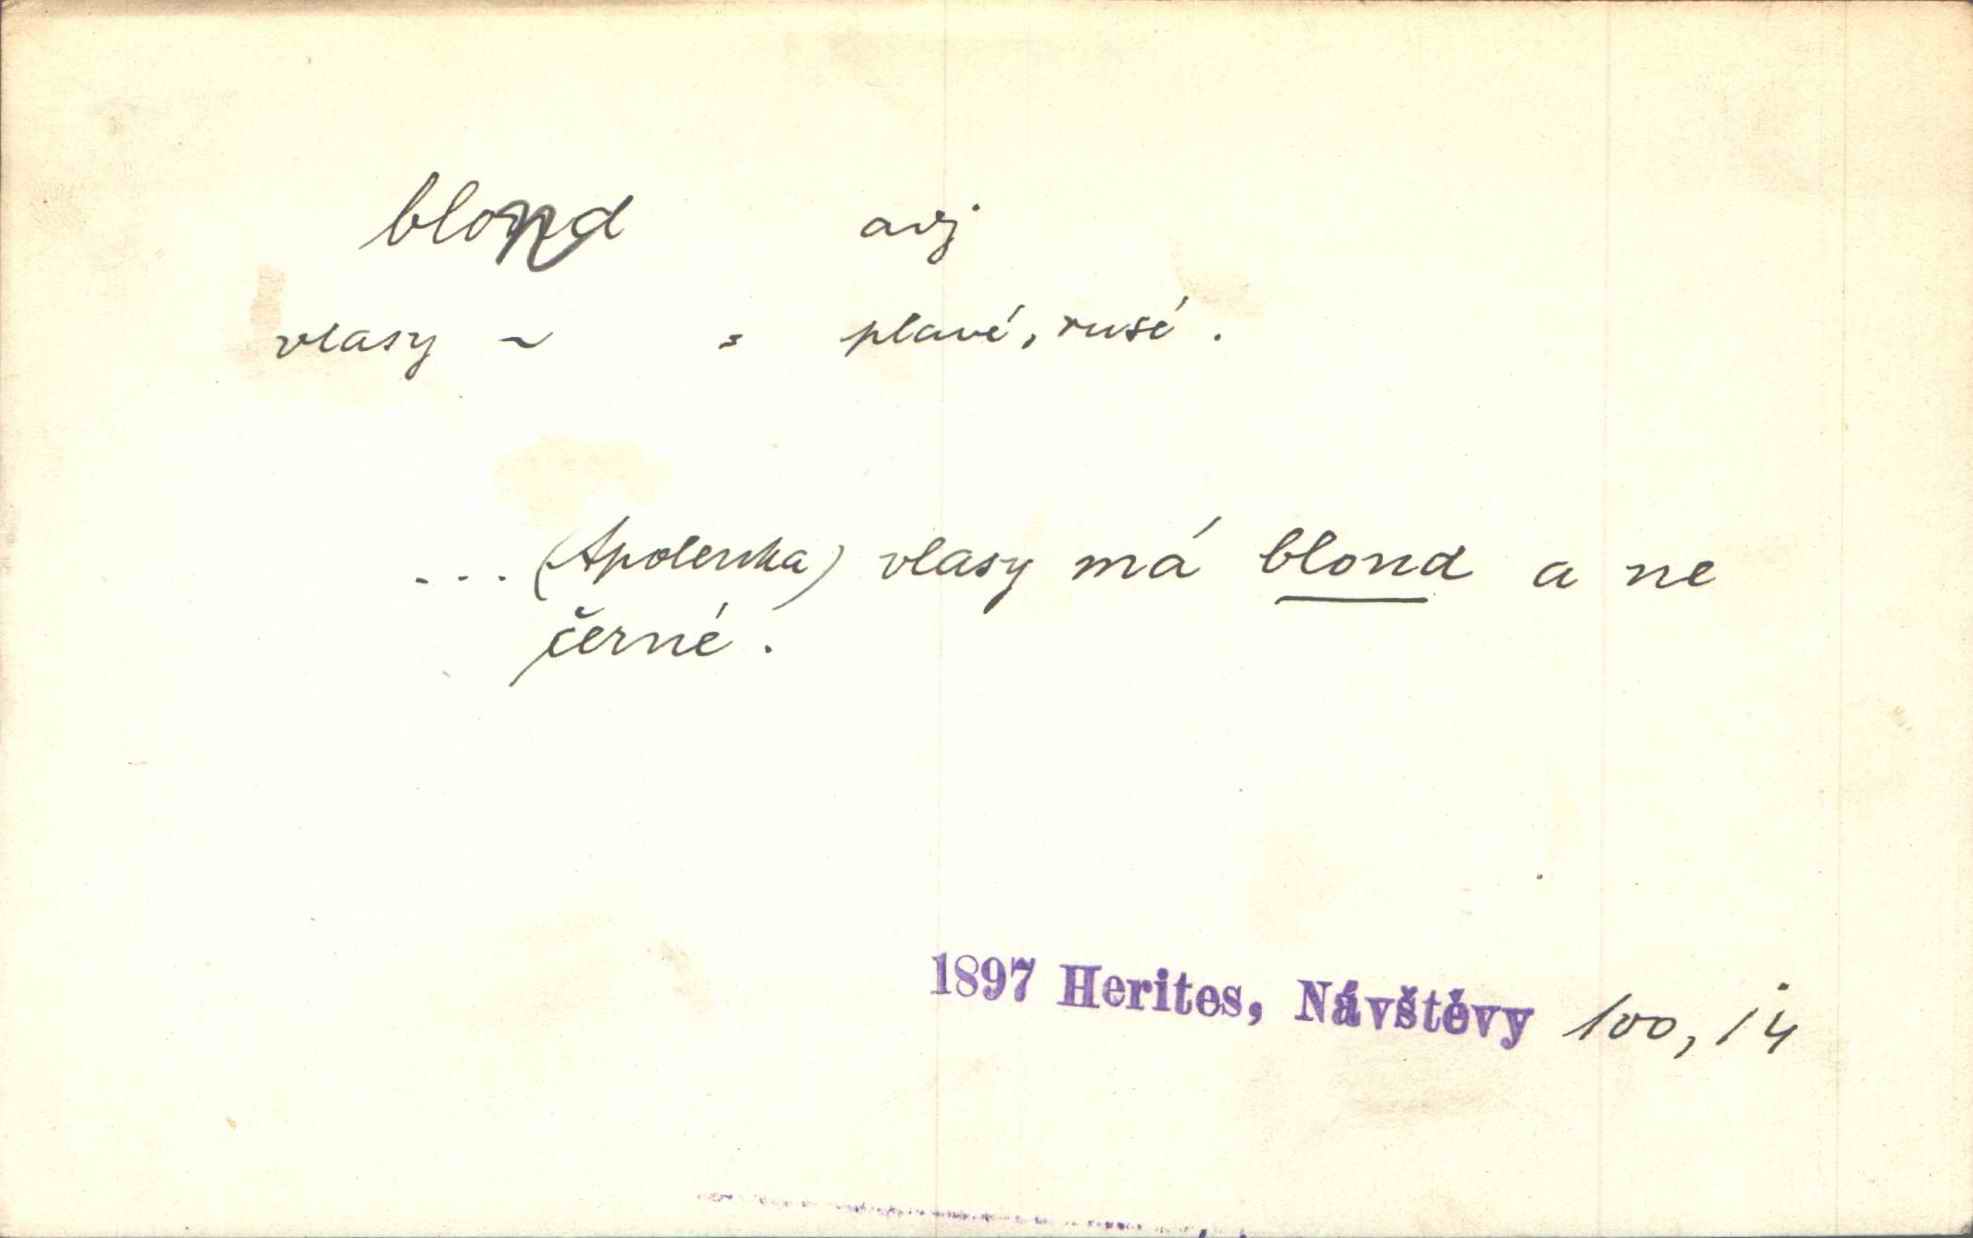 blond adj
vlasy ~ = plavé, rusé.
... (Apolenka) vlasy má blond a ne
černé.
1897 Herites, Návštěvy 100, 14